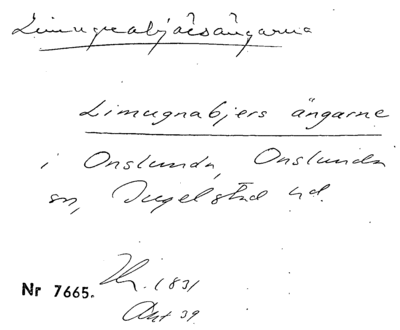 Limugnabjärsängarna
Limugnabjers ängarne
i Onslunda, Onslunda
sn, Ingelstad hd.
Nr 7665. Th. 1831
Akt 39